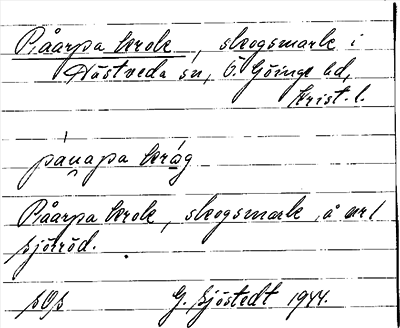 Råarpa krok, skogsmark i
Nåstveda sn, Ö. Göinge hd,
Krist. l.
råuapa kråg
Råarpa krok, skogsmark, å nr 1
Sjöröd.
G. Sjöstedt 1944.